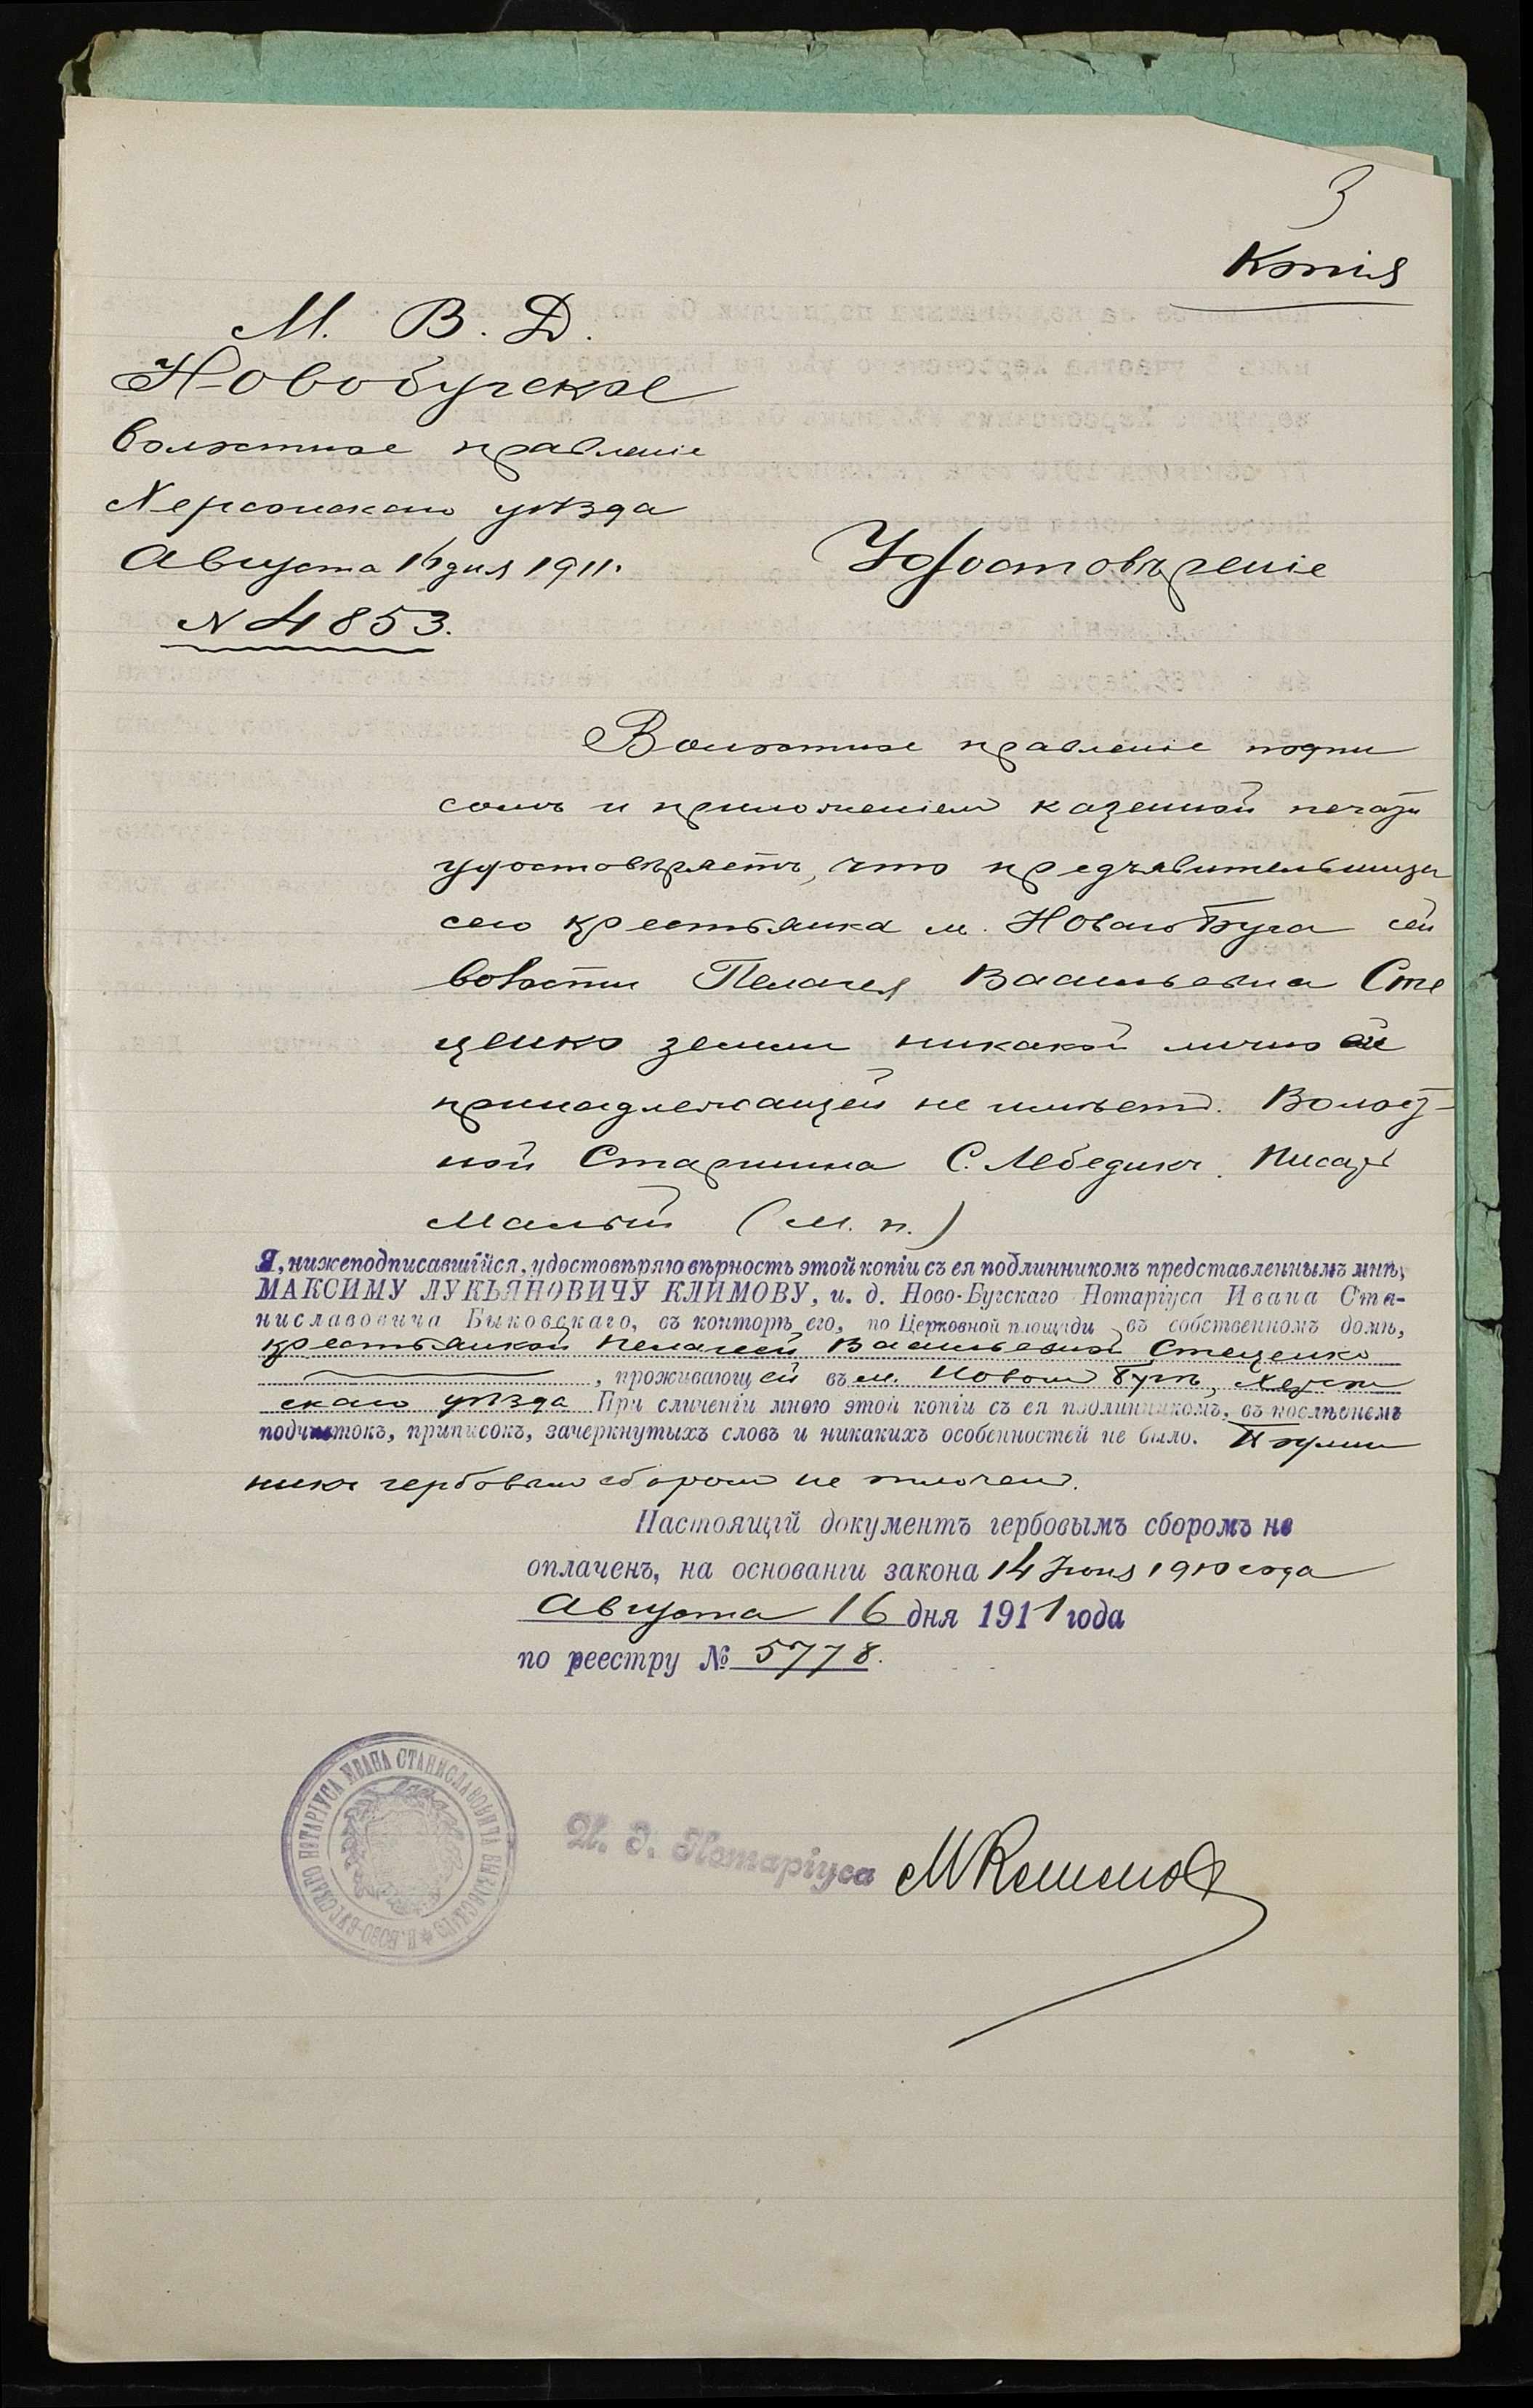 3
Копія
М. В. Д.
Новобугское
волостное правленіе
Херсонскаго уѣзда
Августа 16 дня 1911.
N 4853.
Удостовѣреніе
Волостное правленіе подпи
сомъ и приложеніем казенной печати
удостовѣряетъ, что предъявительница
сего крестьянка м. Новаго Буга сей
волости Пелагея Васильевна Сте
ценко земли никакой лично ей
принадлежащей не имѣетъ. Волост-
ной Старшина С. Лебедикъ. Писарь
Малый (М. п.)
Я, нижеподписавшійся, удостовѣряю вѣрность этой копіи съ ея подлинникомъ представленнымъ мнѣ,
МАКСИМУ ЛУКЬЯНОВИЧУ КЛИМОВУ, и. д. Ново-Бугскаго Нотаріуса Ивана Ста-
ниславовича Быковскаго, въ конторѣ его, по Церковной площади въ собственномъ домѣ,
крестьянкой Пелагеей Васильевной Стеценко
, проживающей въ м. Новом Бугѣ, Херсон
скаго уѣзда При сличеніи мною этой копіи съ ея подлинникомъ, въ послѣднемъ
подчистокъ, приписокъ, зачеркнутыхъ словъ и никакихъ особенностей не было. Подлин
никъ гербовым сбором не оплочен.
Настоящій документъ гербовымъ сборомъ не
оплаченъ, на основаніи закона 14 Іюня 1910 года
Августа 16 дня 1911 года
по реестру № 5778.
И. д. Нотаріуса МКлимов
Н. НОВО-БУГСКАГО НОТАРІУСА ИВАНА СТАНИСЛАВОВИЧА БЫКОВСКАГО